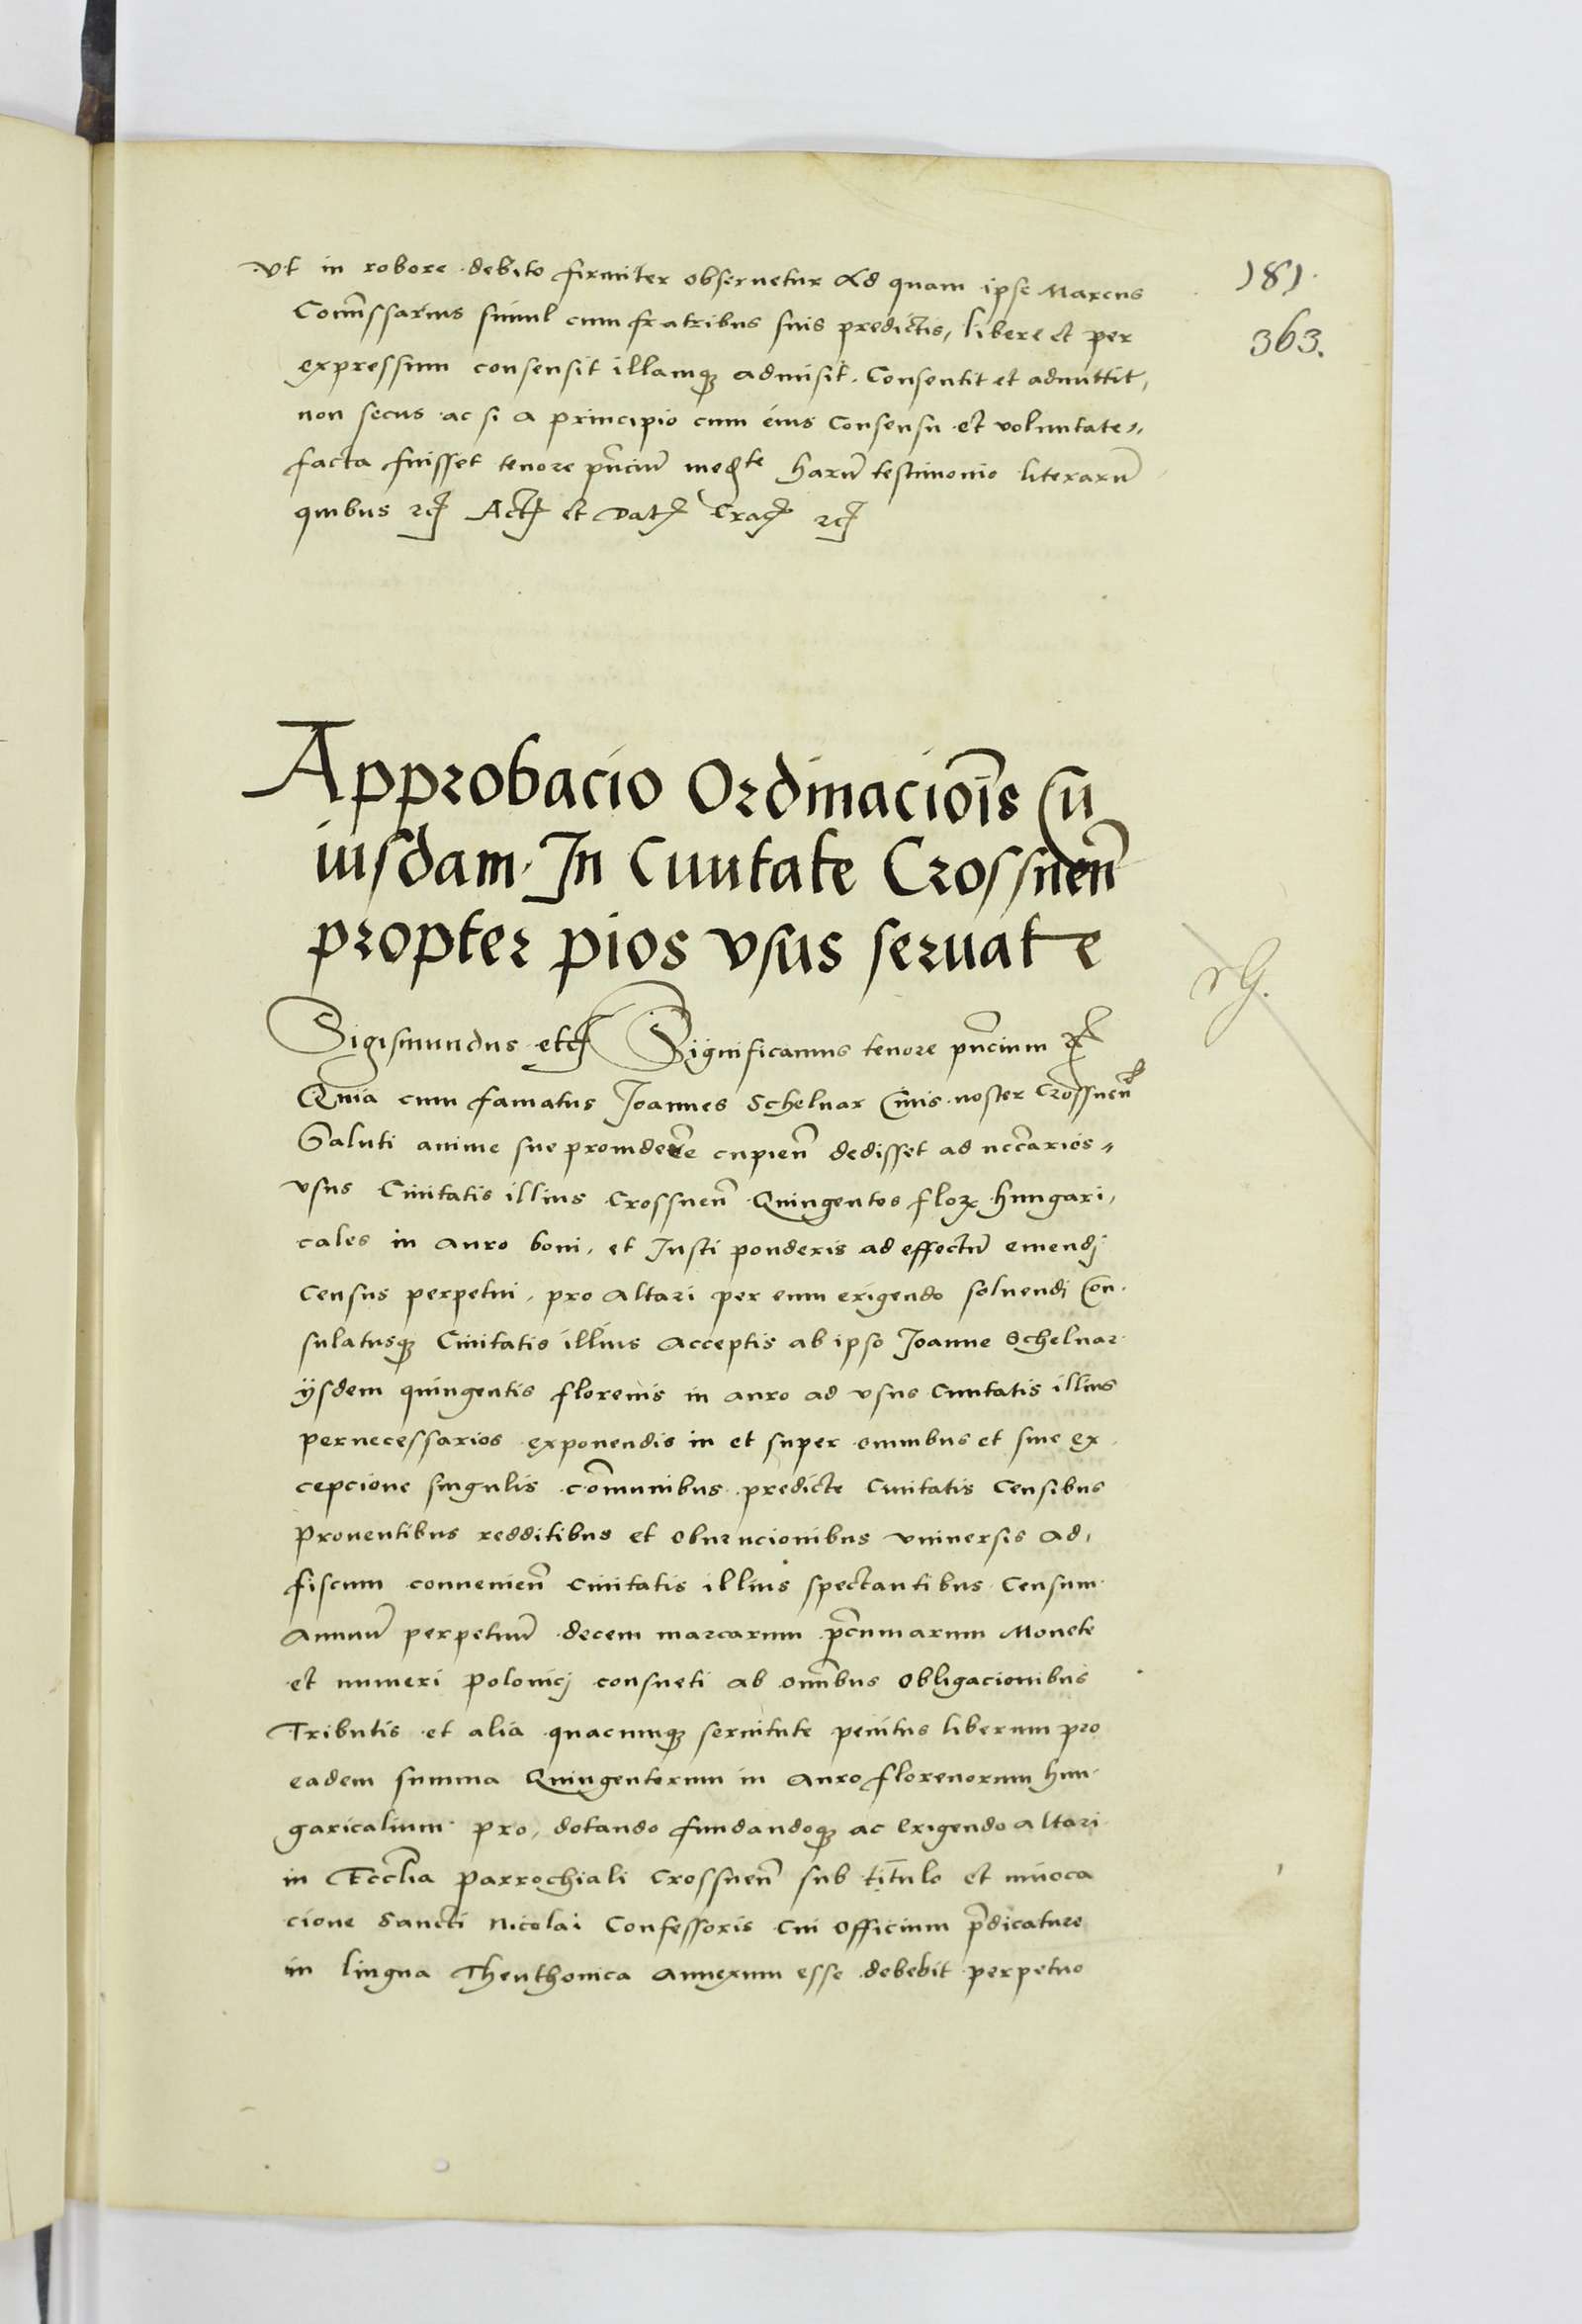 Vt in robore debito firmiter obseruetur Ad quam ipse Marcus
181.
Com̄issarius simul cum fratribus suis predictis, libere et per
363.
expressum consensit illamqʒ admisit. Consentit et admittit,
non secus ac si a principio cum eius Consensu et voluntate
facta fuisset tenore pn̄ciuꝫ medte harū testimonio literarū
quibus ꝛcꝫ Actꝫ et Datꝫ Cracꝫ ꝛcꝫ
Approbacio Ordinacioīs Cu
iusdam. In Ciuitate Crossnen̄
propter pios vsus seruate
rG.
Sigismundus etcꝫ Significamus tenore pn̄cium ꝛcꝫ
Quia cum famatus Joannes Schelnar Ciuis noster Crossnen̄
Saluti anime sue prouidere cupien̄ dedisset ad nec̄carios
vsus Ciuitatis illius Crossnen̄ Quingentos floꝝ hungari,
cales in auro boni, et Justi ponderis ad effectū emendj
Census perpetui, pro Altari per eum erigendo soluendj Con
sulatusqʒ Ciuitatis illius Acceptis ab ipso Joanne Schelnar
ijsdem quingentis florenis in auro ad vsus Ciuitatis illius
pernecessarios exponendis in et super omnibus et sine ex
cepcione singulis com̄unibus predicte Ciuitatis Censibus
Prouentibus redditibus et Obuencionibus vniuersis ad,
fiscum conuenien̄ Ciuitatis illius spectantibus Censum
Annuū perpetuū decem marcarum pecuniarum Monete
et numeri Polonicj consueti ab om̄ibus Obligacionibus
Tributis et alia quacumqʒ seruitute penitus liberum pro
eadem summa Quingentorum in auro florenorum hun
garicalium pro, dotando fundandoqʒ ac Erigendo Altari
in Eccl̄ia Parrochiali Crossnen̄ sub titulo et inuoca
cione Sancti Nicolai Confessoris Cui Officium p̄dicature
in lingua Theuthonica Annexum esse debebit perpetuo